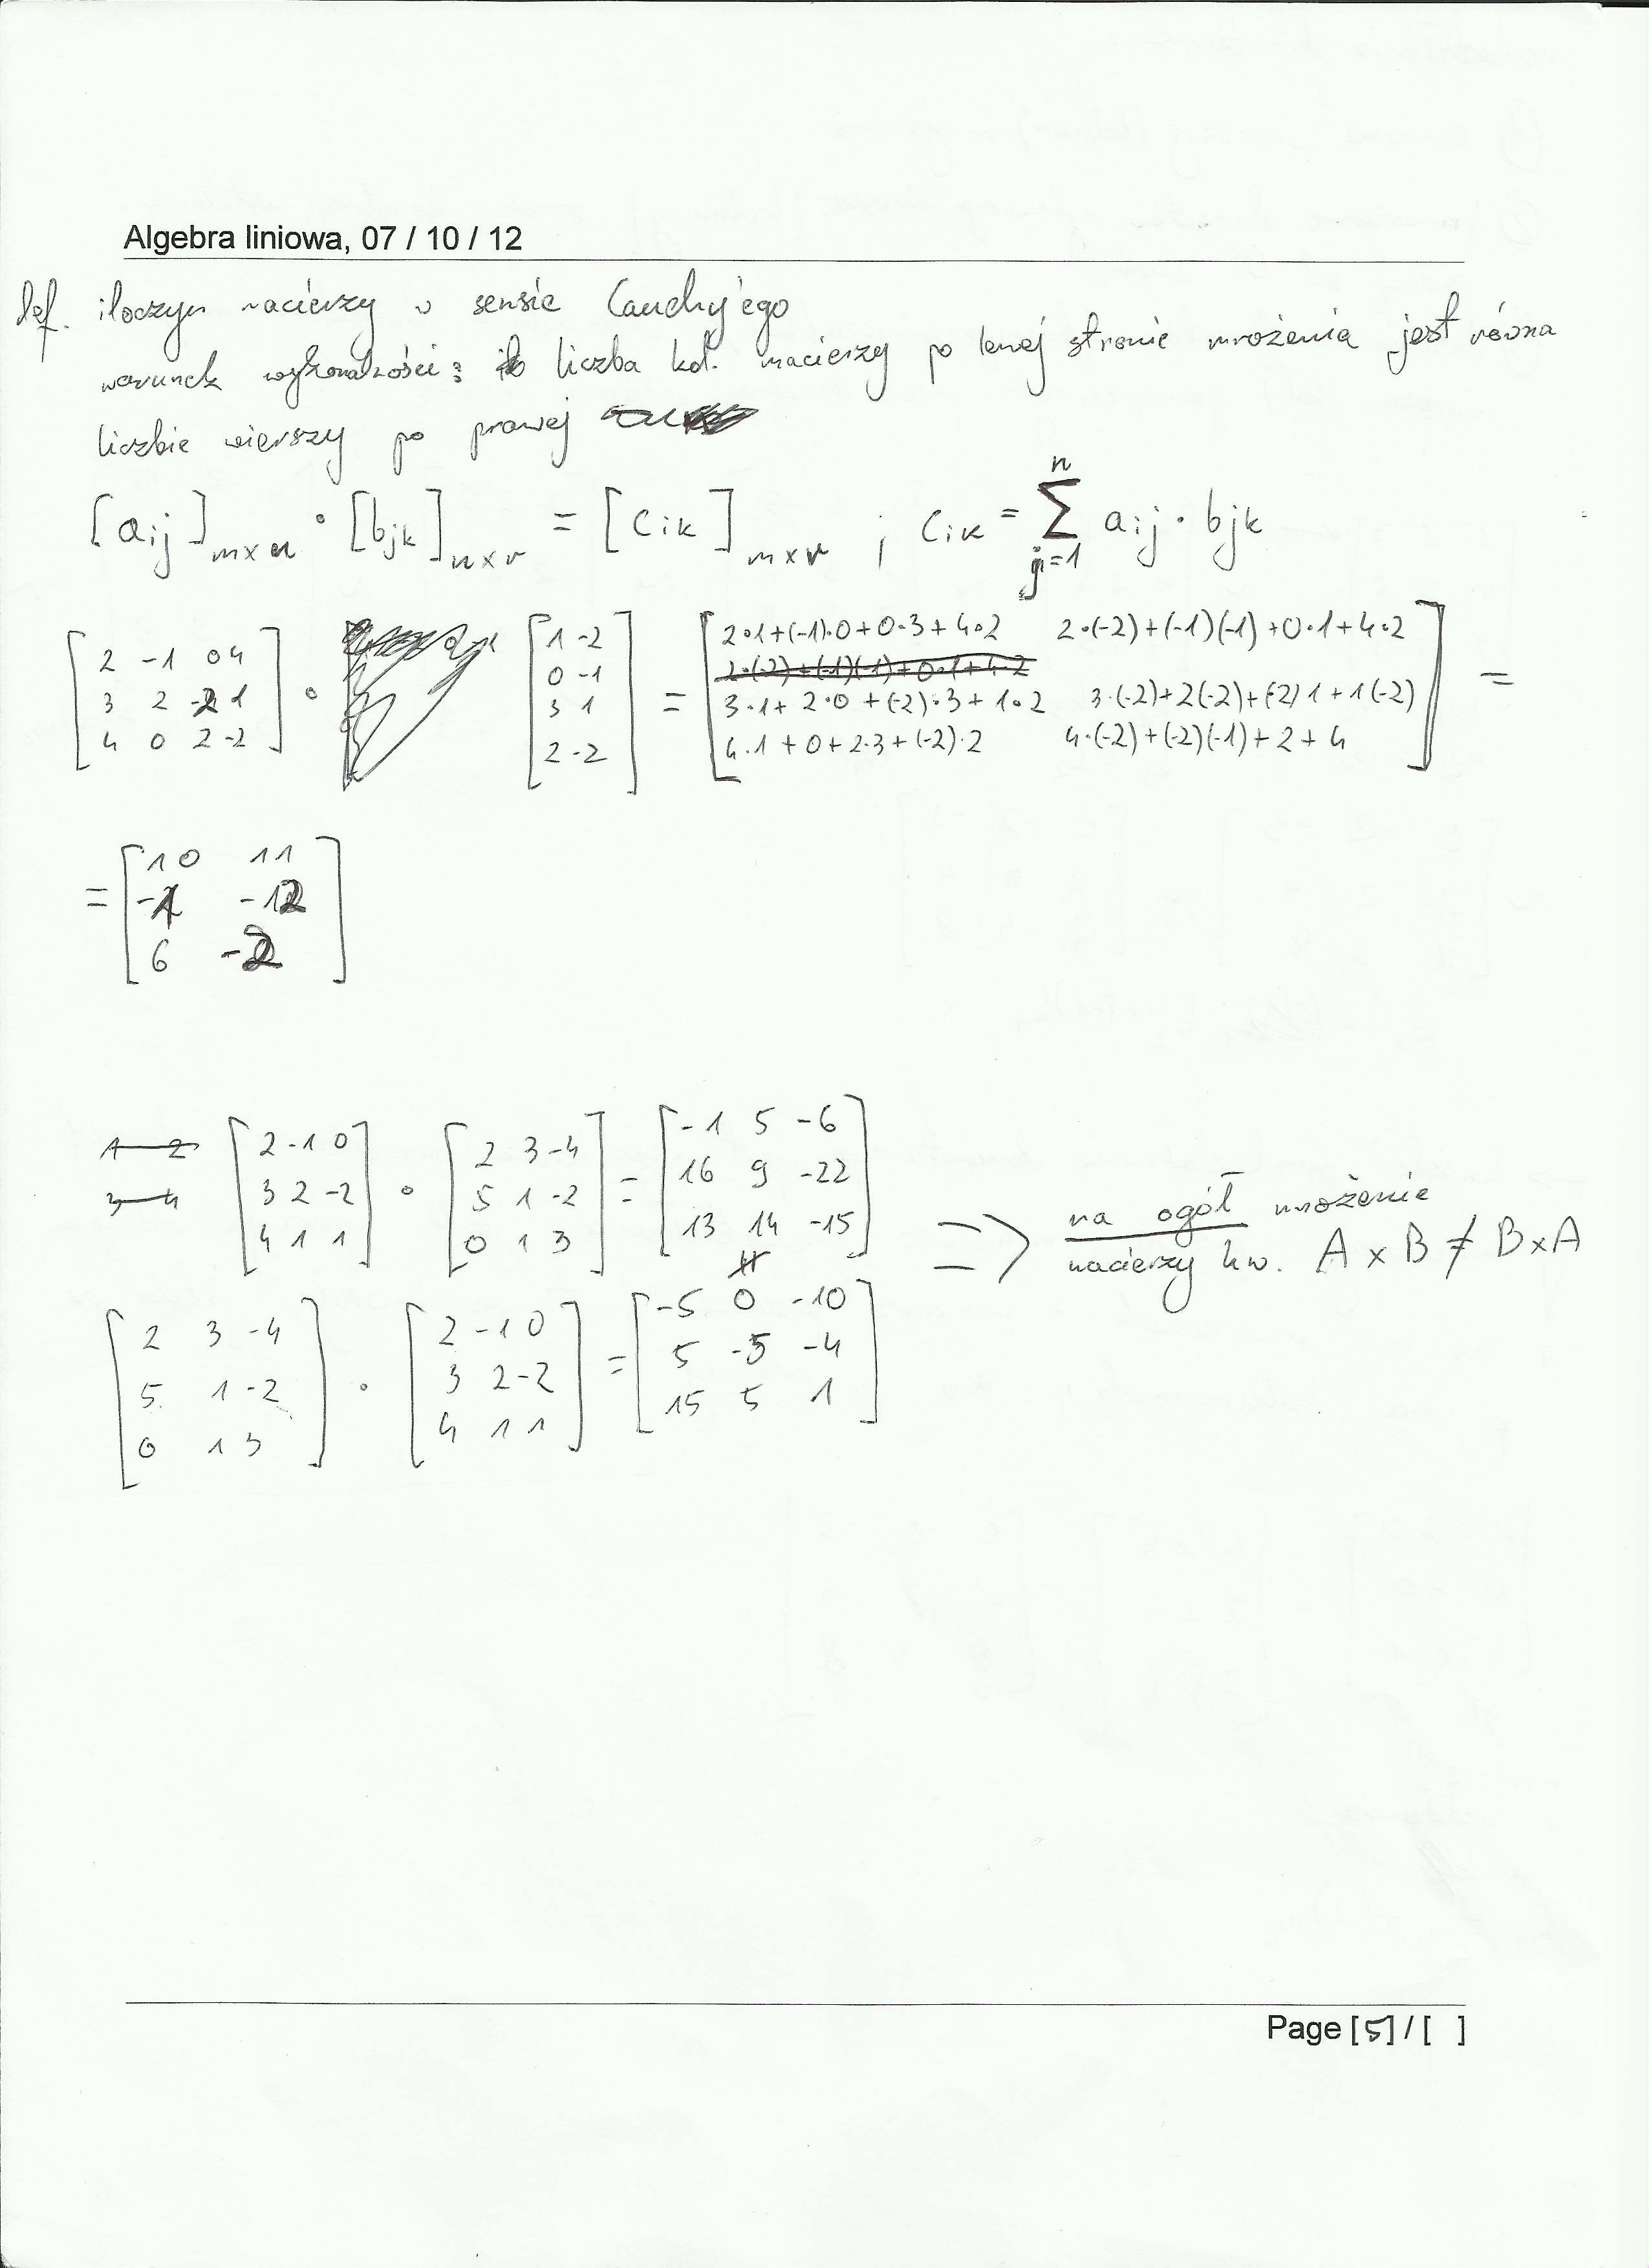 Algebra liniowa, 07 / 10 / 12
def. iloczyn macierzy w sensie Cauchy'ego
warunek wykonalności: liczba kol. macierzy po lewej stronie mnożenia jest równa
liczbie wierszy po prawej
[aij]m×n · [bjk]n×r = [cik]m×r ; cik = n∑j=1 aij · bjk
[2 -1 0 4 · [1 -2 = [2·1+(-1)·0+0·3+4·2 2·(-2)+(-1)(-1)+0·1+4·2] =
2·(-2)+(-1)(-1)+0·1+4·2
3 2 -2 1 0 -1 3·1+2·0+(-2)·3+1·2 3·(-2)+2(-2)+(-2)1+1(-2)
4 0 2 -2] 3 1 4·1+0+2·3+(-2)·2 4·(-2)+(-2)(-1)+2+4
2 -2]
= [10 11
-1 -12
6 -2]
1 2 [2 -1 0 · [2 3 -4 = [-1 5 -6
3 4 3 2 -2 5 1 -2 16 9 -22
4 1 1] 0 1 3] 13 14 -15]
=> na ogół mnożenie
macierzy kw. A × B ≠ B × A
[2 3 -4 · [2 -1 0 = [-5 0 -10
5 1 -2 3 2 -2 5 -5 -4
0 1 3] 4 1 1] 15 5 1]
Page [5] / [ ]